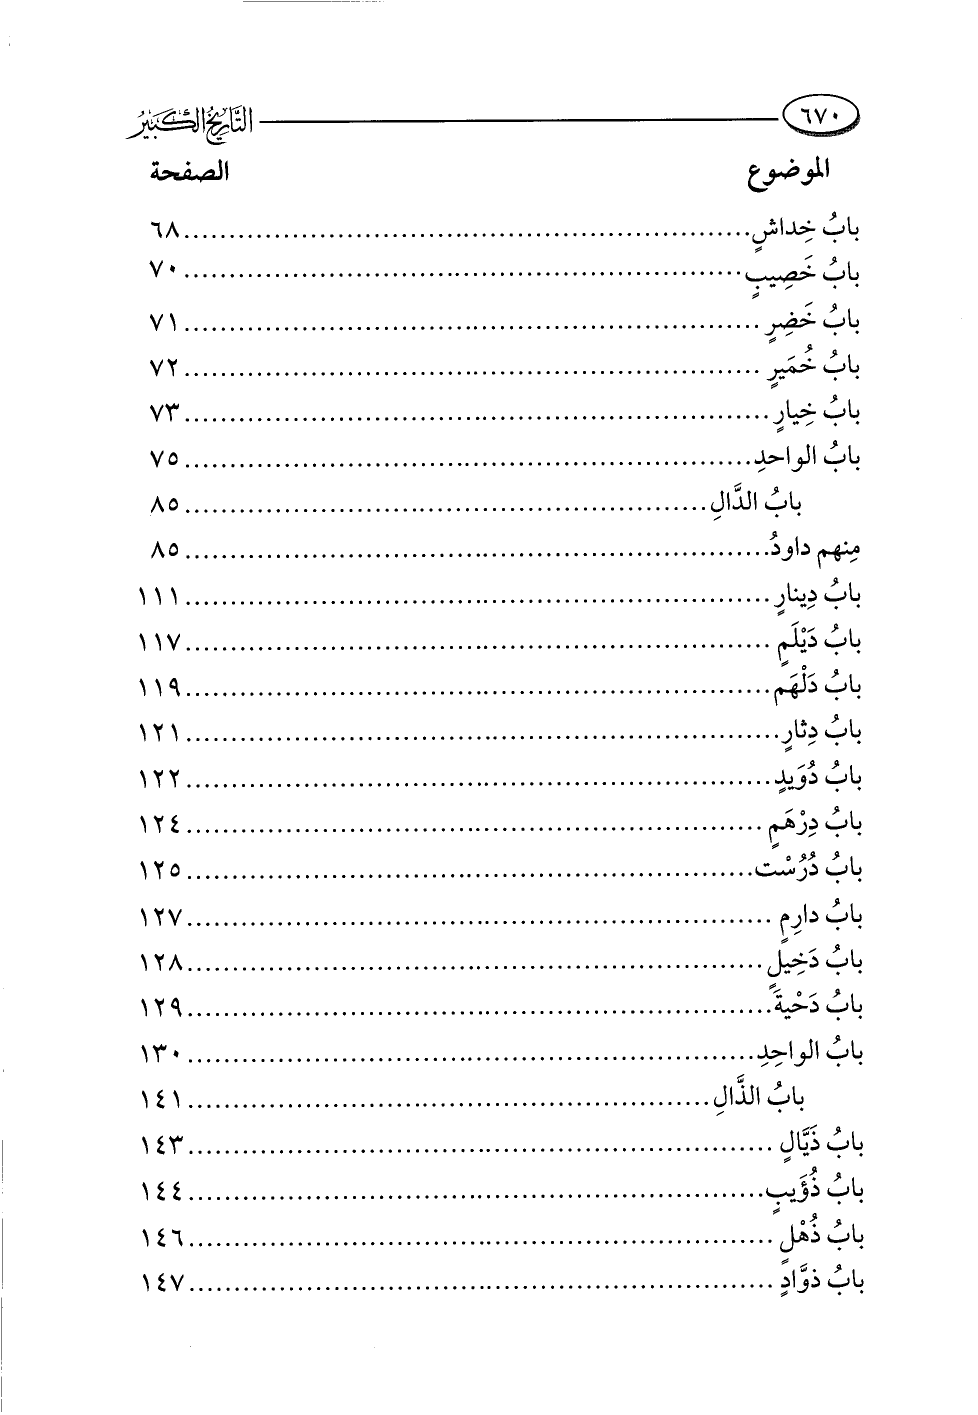 ٦٧٠ التَّارِيخُ الكَبِيرُ
الموضوع الصفحة
بابُ خِداشٍ ٦٨
بابُ خَصِيبٍ ٧٠
بابُ خَضِرٍ ٧١
بابُ خُمَيرٍ ٧٢
بابُ خِيارٍ ٧٣
بابُ الواحدِ ٧٥
بابُ الدَّالِ ٨٥
مِنهم داودُ ٨٥
بابُ دِينارٍ ١١١
بابُ دَيْلَمٍ ١١٧
بابُ دَلْهَمٍ ١١٩
بابُ دِثارٍ ١٢١
بابُ دُوَيدٍ ١٢٢
بابُ دِرْهَمٍ ١٢٤
بابُ دُرُسْت ١٢٥
بابُ دارِمٍ ١٢٧
بابُ دَخِيلٍ ١٢٨
بابُ دَحْيةَ ١٢٩
بابُ الواحِدِ ١٣٠
بابُ الذَّالِ ١٤١
بابُ ذَيَّالٍ ١٤٣
بابُ ذُؤَيبٍ ١٤٤
بابُ ذُهْلٍ ١٤٦
بابُ ذوَّادٍ ١٤٧